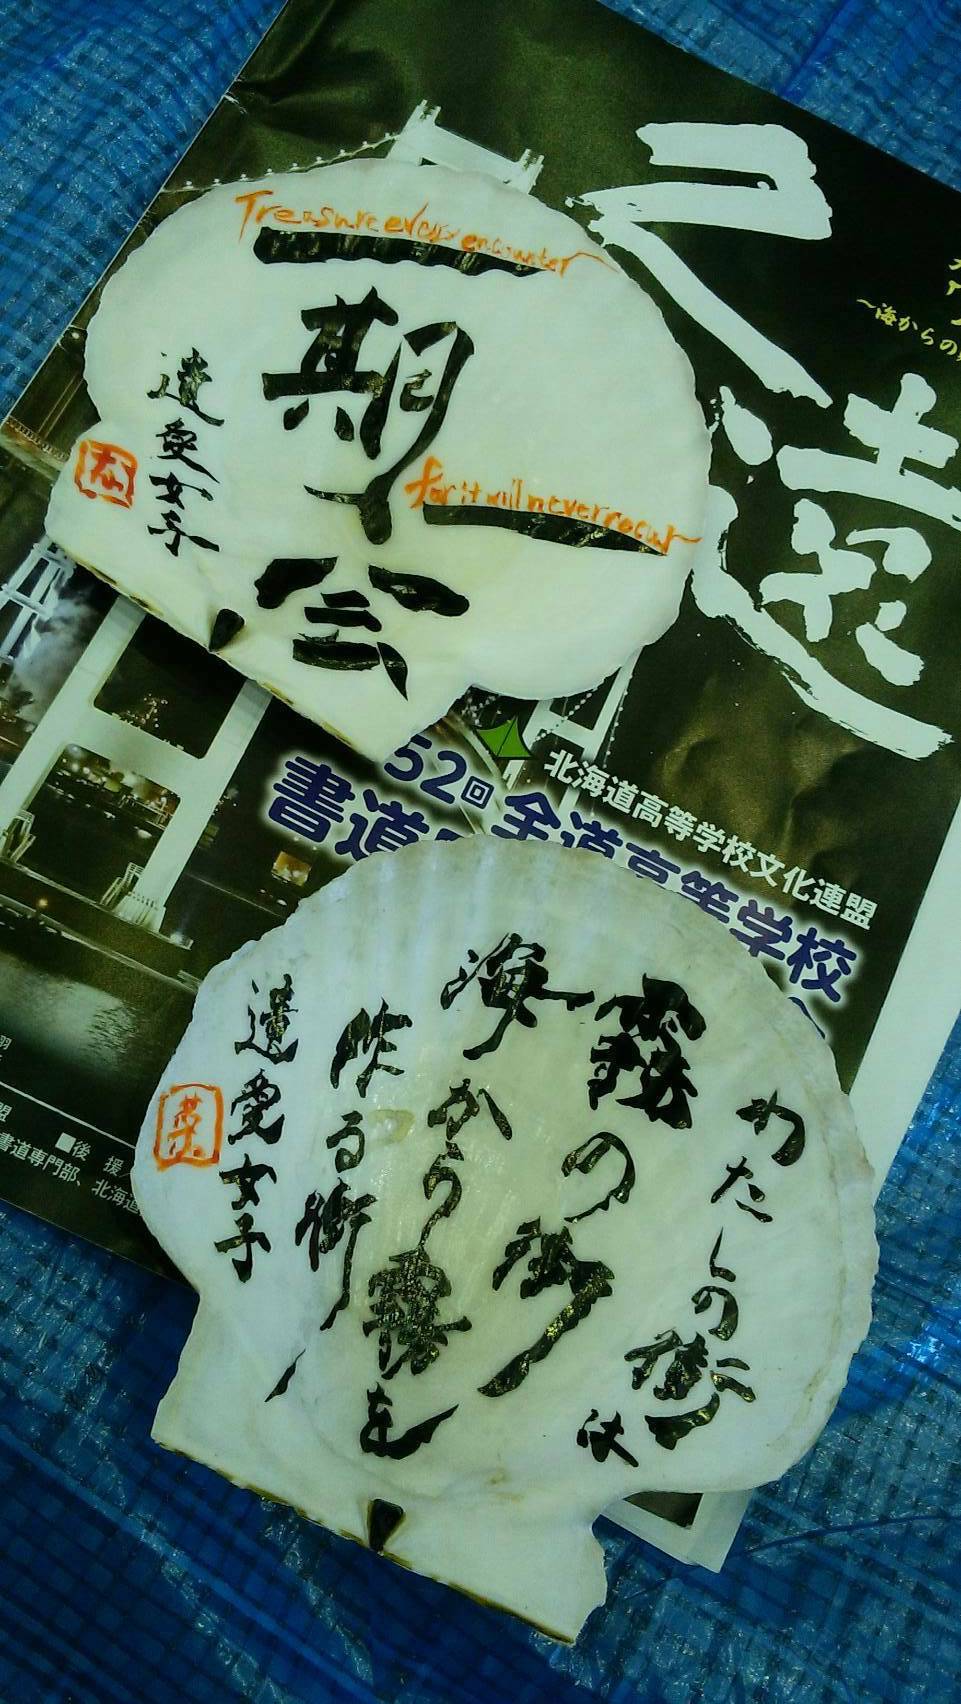 Treasure every encounter
一期一会
for it will never recur
遺愛女子
〜海からの
52回 全道高等学校
書道
北海道高等学校文化連盟
■後 援
書道専門部、北海道
わたしの街は
霧の街
海から霧を
昨る街
遺愛女子